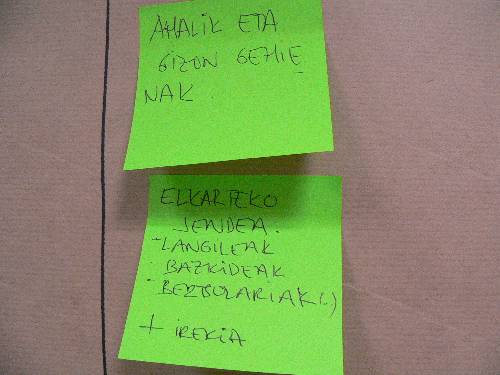 AHALIK ETA
GIZON GEHIE
NAK
ELKARTEKO
JENDEA.
- LANGILEAK
- BAZKIDEAK
- BERTSOLARIAK(.)
+ IREKIA